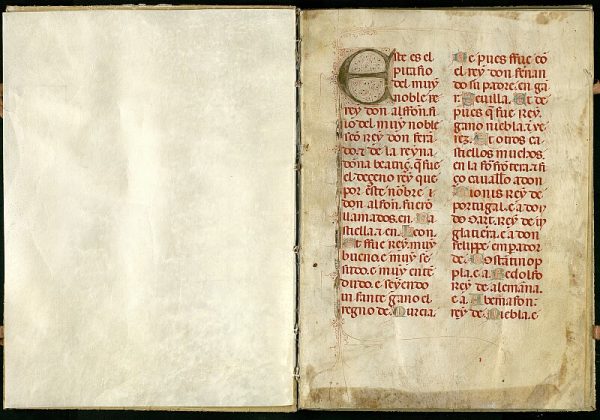 Este es el
pitafio
del muy
noble re
rey don alfon. fi
io del muy noble
sco rey don fera
do. z de la reyna
dona beatric. q̄ fue
el deçeno rey que
por este nōbre z
don alfon. fuerō
llamados. en. Ca
stiella. z en. Leon.
Et ffue rey. muy
bueno. e muy se
sudo. e muy entē
dudo. e seyendo
infante gano el
regno de. Murcia.
De pues ffue cō
el rey don fenan
do su padre. en ga
r. Seuilla. Et de
pues q̄ fue rey.
gano niebla. z xe
rez. Et otros ca
stiellos muchos.
en la frontera. z fi
ço cauallo a don
Dionis rey de
portugal. e a do
dart. rey de in
glatera. e a don
felippe enpador
de. Costātinop
pla. e. a. Redolfo
rey de alemāna.
e. a. Abēmafon.
rey de. Niebla. e